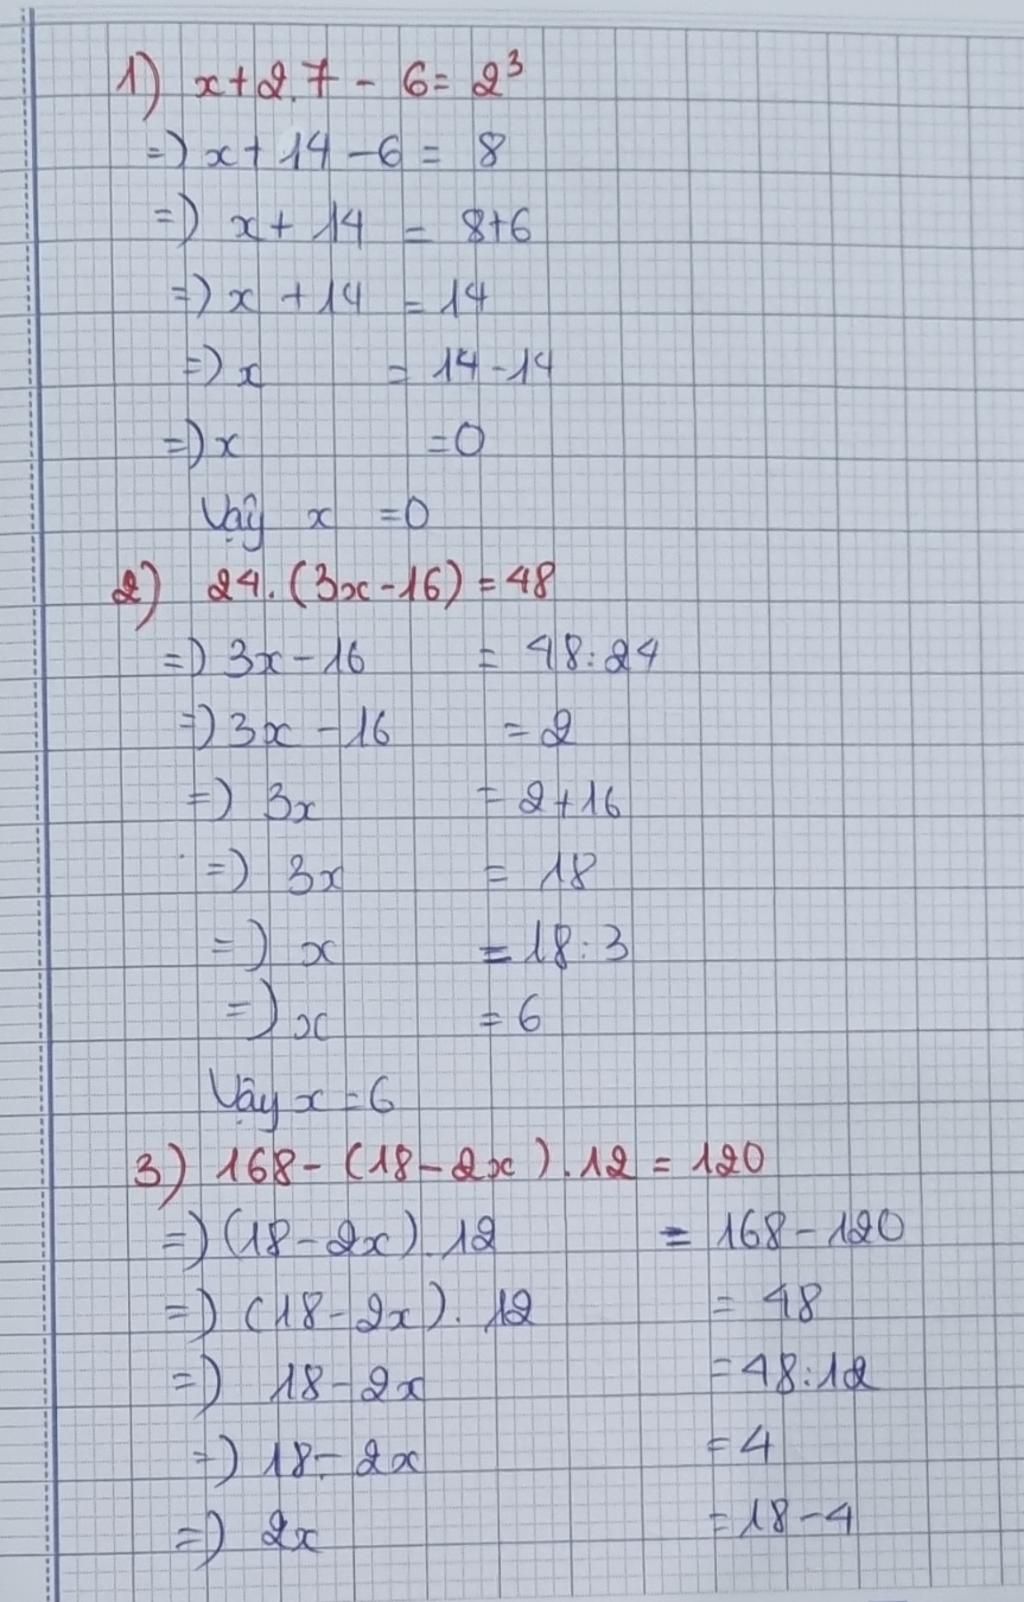 1) x+2.7 - 6 = 2³
=) x + 14 - 6 = 8
=) x + 14 = 8+6
=) x + 14 = 14
=) x = 14 - 14
=) x = 0
Vậy x = 0
2) 24. (3x - 16) = 48
=) 3x - 16 = 48 : 24
=) 3x - 16 = 2
=) 3x = 2 + 16
=) 3x = 18
=) x = 18 : 3
=) x = 6
Vậy x = 6
3) 168 - (18 - 2x) . 12 = 120
=) (18 - 2x) . 12 = 168 - 120
=) (18 - 2x) . 12 = 48
=) 18 - 2x = 48 : 12
=) 18 - 2x = 4
=) 2x = 18 - 4